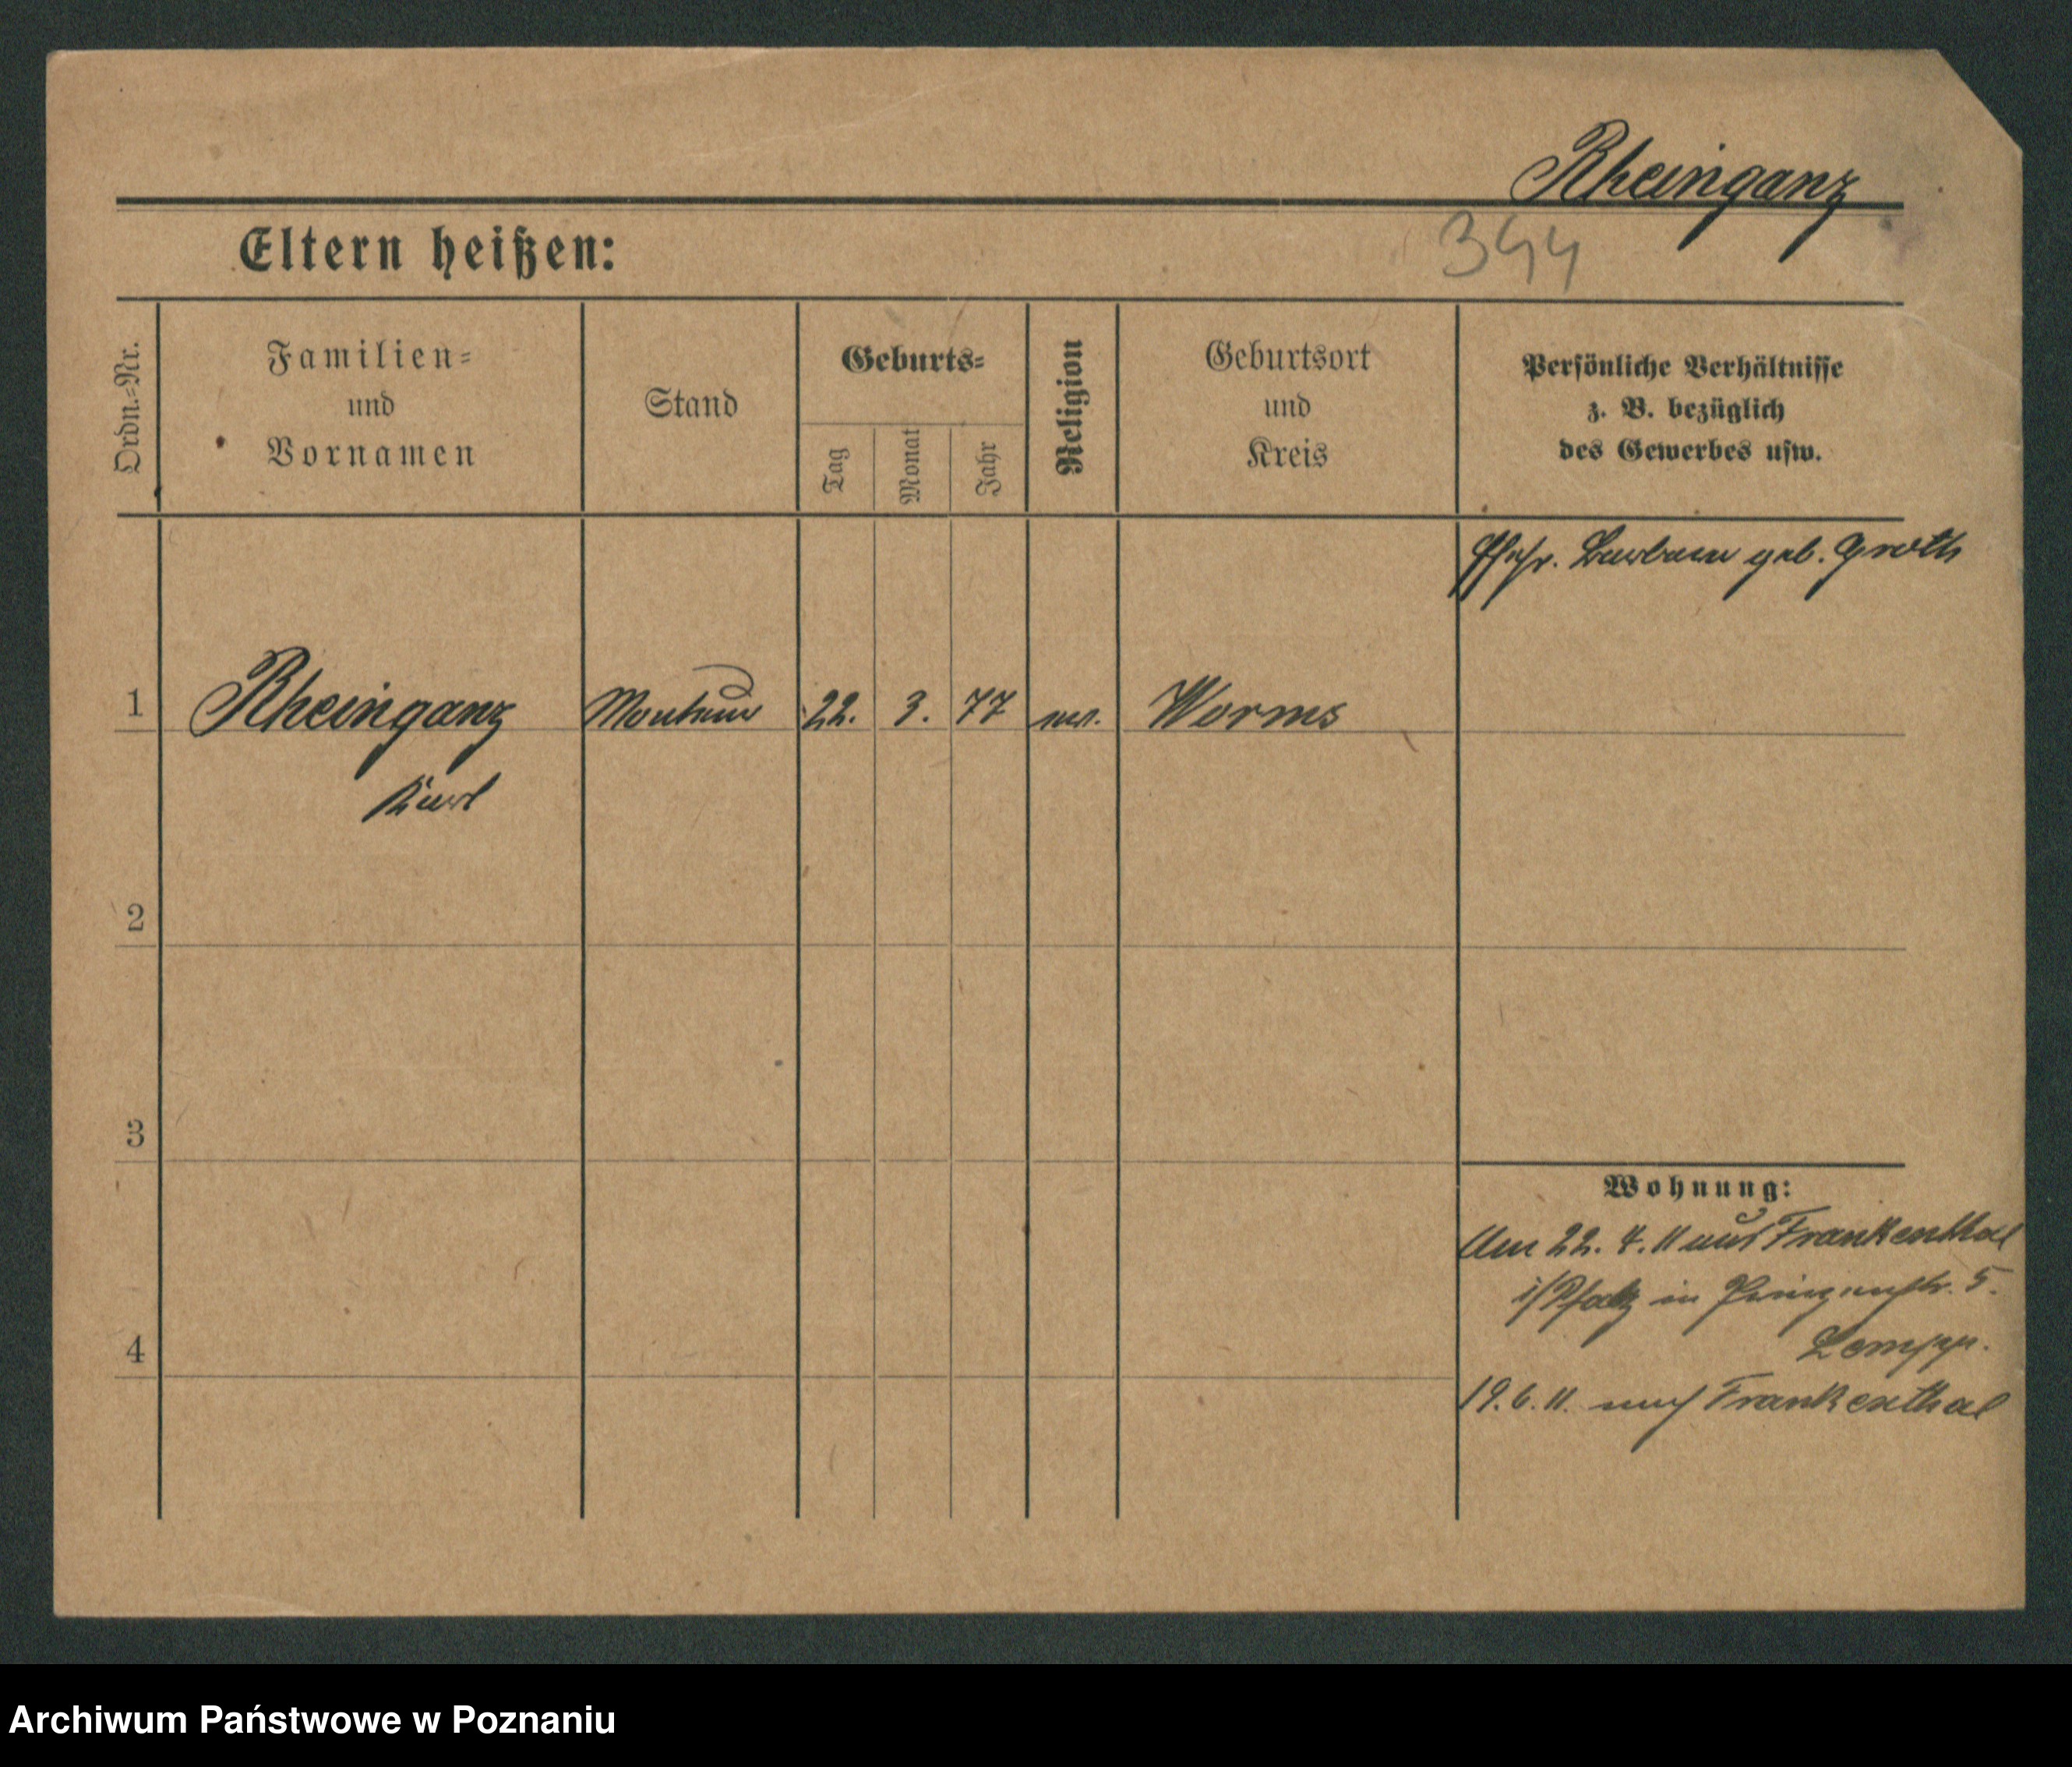 Rheinganz
Eltern heißen:
344
Ordn.=Nr.
Familien=
und
Vornamen
Stand
Geburts=
Tag
Monat
Jahr
Religion
Geburtsort
und
Kreis
Persönliche Verhältnisse
z. B. bezüglich
des Gewerbes usw.
Barbara geb. Groth
1 Rheinganz Monteur 22. 3. 77 ev. Worms
Karl
2
3
Wohnung:
Am 22. 4. 11 aus Frankenthal
i/Pfalz in Prinzenstr. 5.
4
19. 6. 11. nach Frankenthal
Archiwum Państwowe w Poznaniu